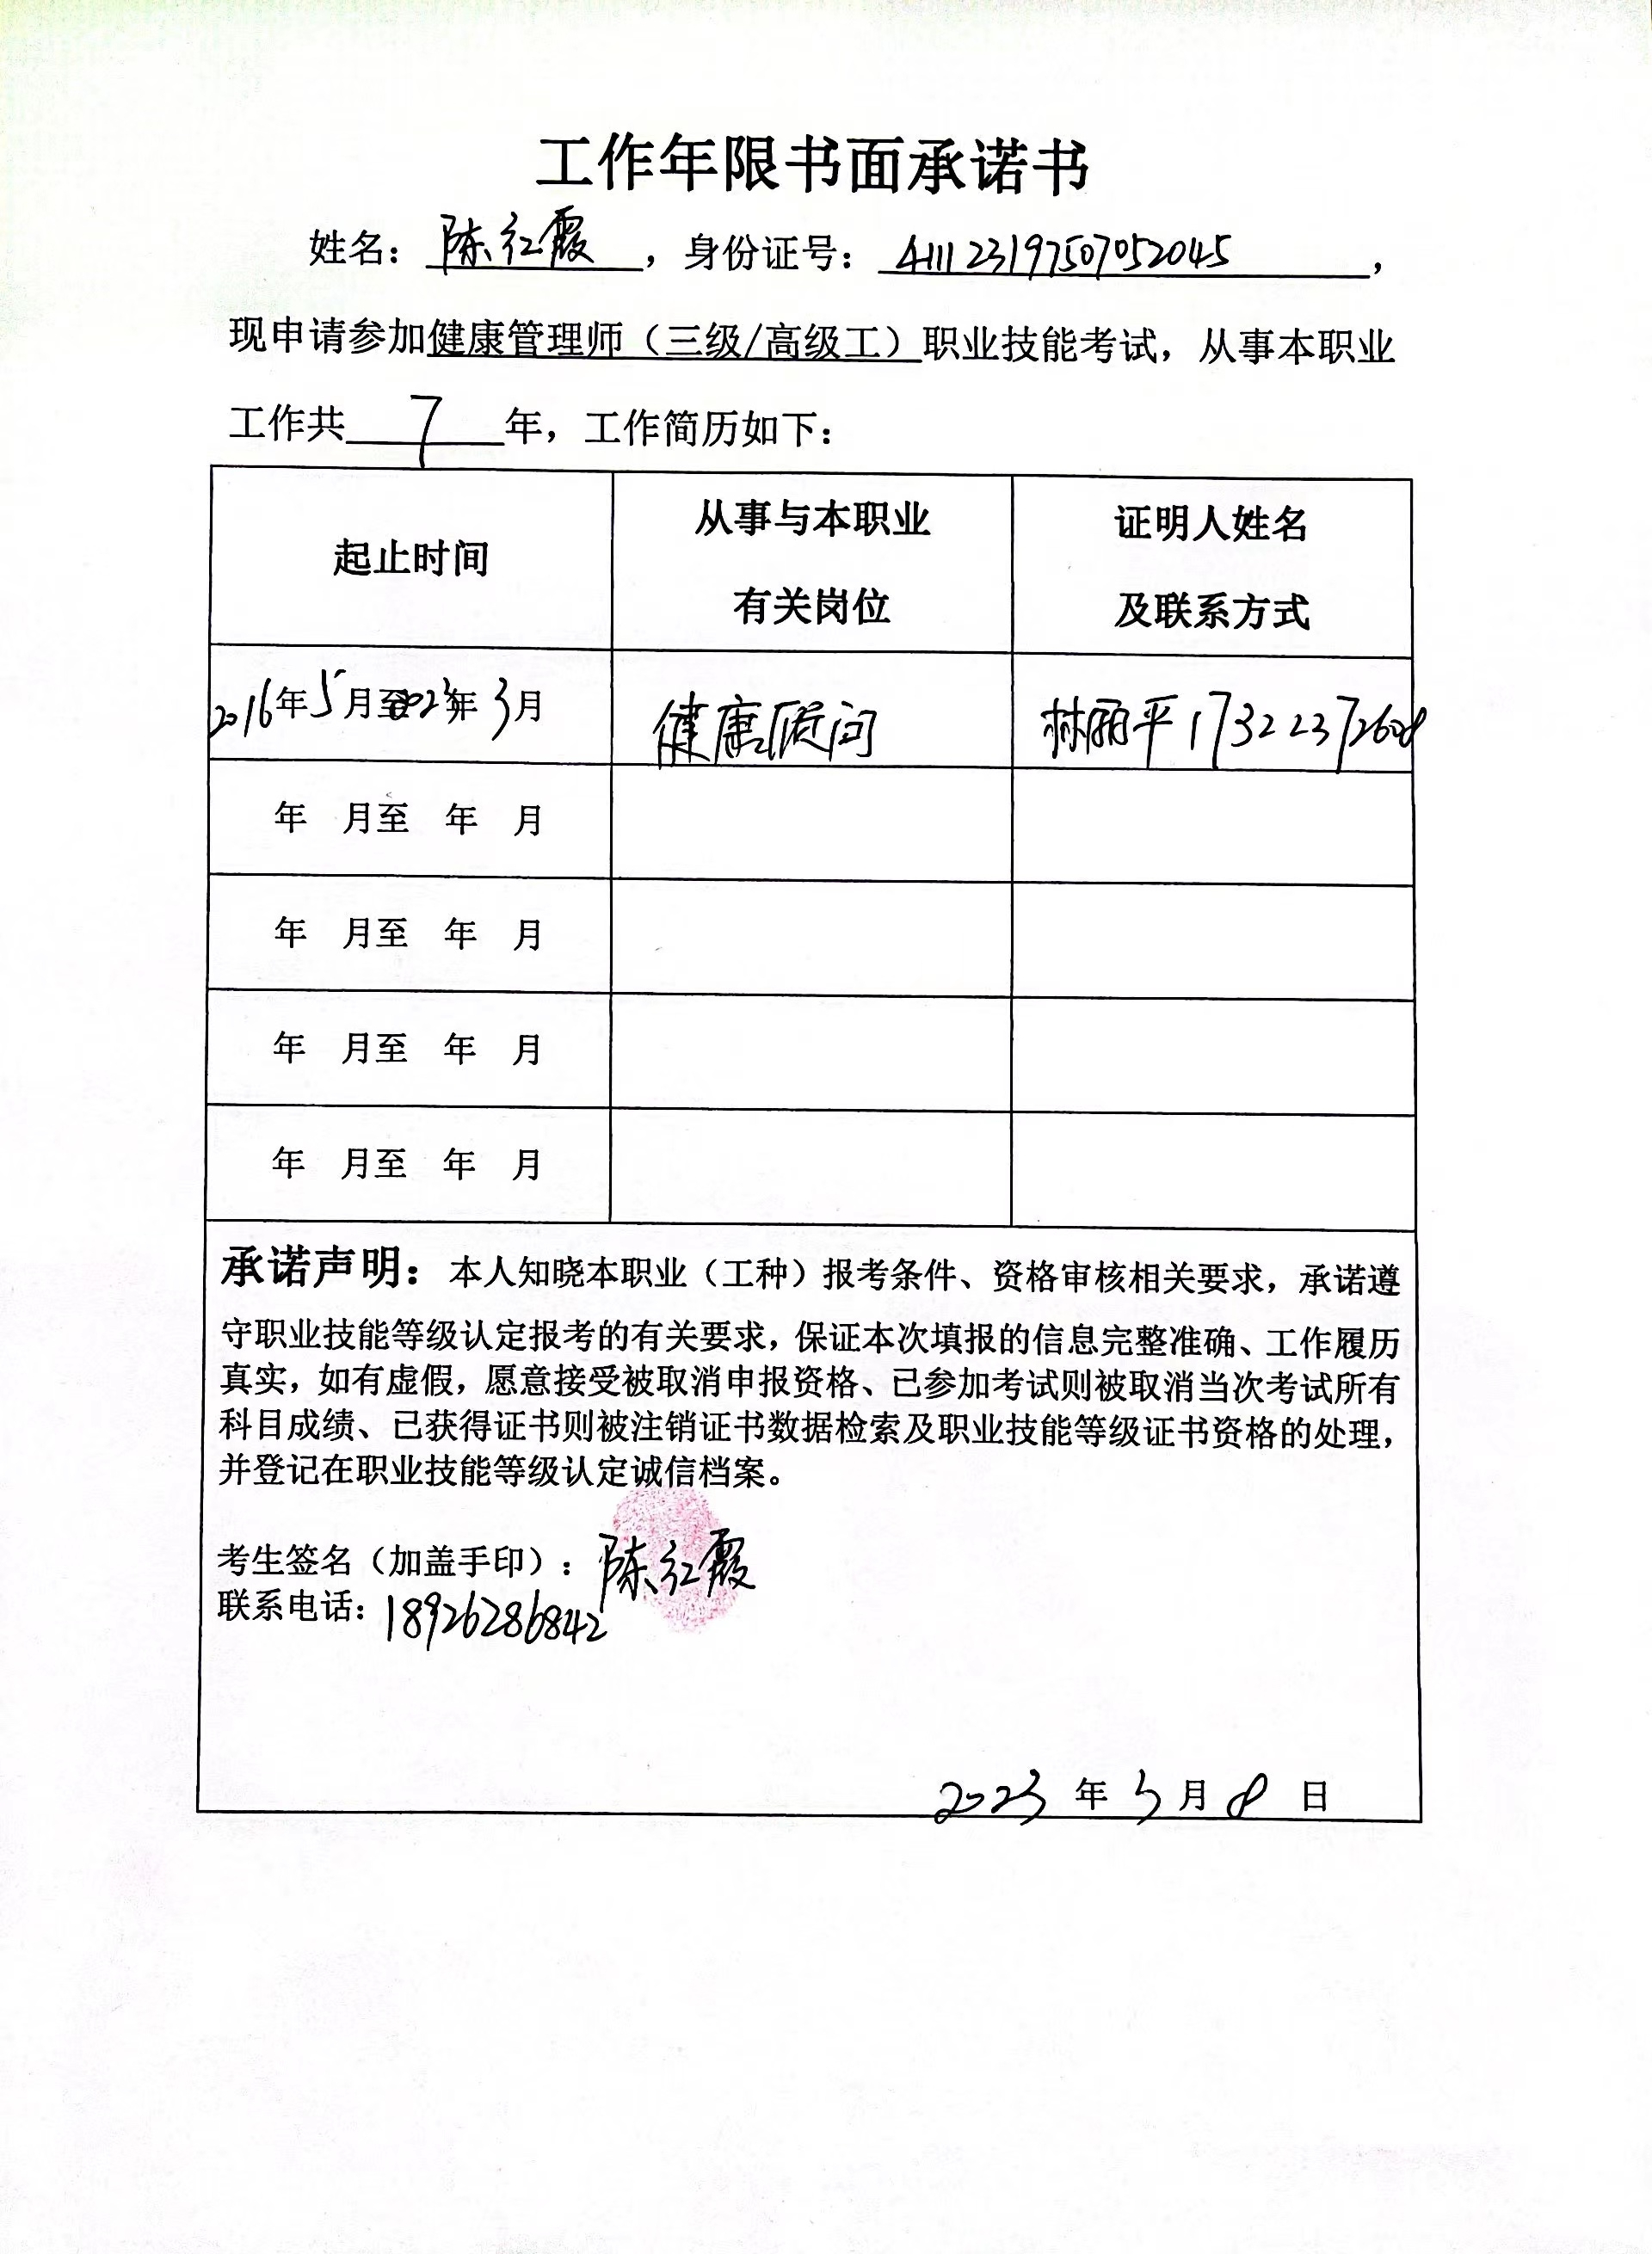 工作年限书面承诺书
姓名：陈红霞，身份证号：411123197507052045，
现申请参加健康管理师（三级/高级工）职业技能考试，从事本职业
工作共7年，工作简历如下：
起止时间
从事与本职业
有关岗位
证明人姓名
及联系方式
2016年5月至2023年3月 健康顾问 林丽平17322372608
年 月至 年 月
年 月至 年 月
年 月至 年 月
年 月至 年 月
承诺声明：本人知晓本职业（工种）报考条件、资格审核相关要求，承诺遵
守职业技能等级认定报考的有关要求，保证本次填报的信息完整准确、工作履历
真实，如有虚假，愿意接受被取消申报资格、已参加考试则被取消当次考试所有
科目成绩、已获得证书则被注销证书数据检索及职业技能等级证书资格的处理，
并登记在职业技能等级认定诚信档案。
考生签名（加盖手印）：陈红霞
联系电话：18926286842
2023年3月8日